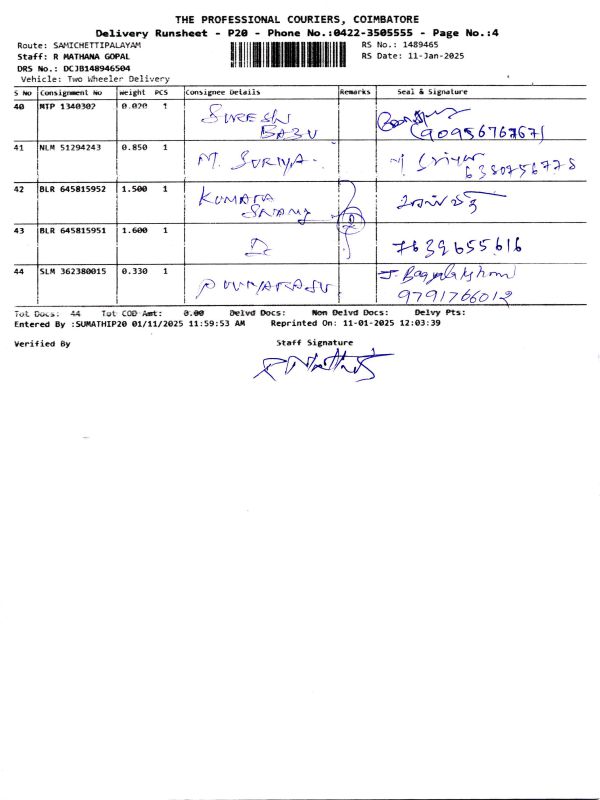 THE PROFESSIONAL COURIERS, COIMBATORE
Delivery Runsheet - P20 - Phone No.:0422-3505555 - Page No.:4
Route: SAMICHETTIPALAYAM RS No.: 1489465
Staff: R MATHANA GOPAL RS Date: 11-Jan-2025
DRS No.: DCJB148946504
Vehicle: Two Wheeler Delivery
S No Consignment No Weight PCS Consignee Details Remarks Seal & Signature
40 MTP 1340302 0.020 1 SURESH
BABU (9095676767)
41 NLM 51294243 0.850 1 M. SURIYA.
6380756778
42 BLR 645815952 1.500 1 KUMARA
43 BLR 645815951 1.600 1 7639655616
44 SLM 362380015 0.330 1 J. Bagyalakshmi
9791766012
Tot Docs: 44 Tot COD Amt: 0.00 Delvd Docs: Non Delvd Docs: Delvy Pts:
Entered By :SUMATHIP20 01/11/2025 11:59:53 AM Reprinted On: 11-01-2025 12:03:39
Verified By Staff Signature